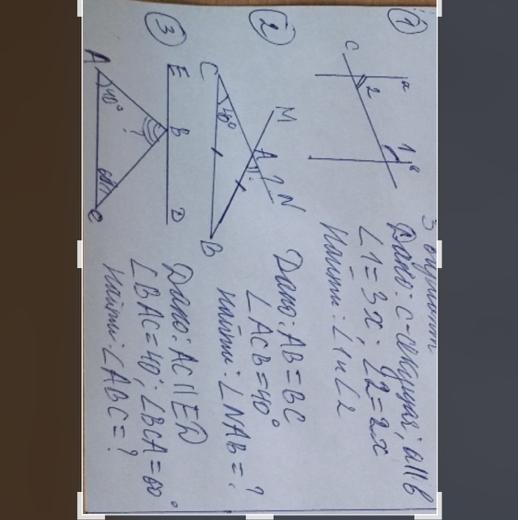 3 вариант
①
c
a
2
1
в
Дано: c-секущая; a||в
∠1=3x; ∠2=2x
Найти: ∠1 и ∠2
②
M
C
40°
A
?
N
B
Дано: AB=BC
∠ACB=40°
Найти: ∠NAB=?
③
E
B
D
A
40°
?
60°
C
Дано: AC||ED
∠BAC=40°; ∠BCA=60°
Найти: ∠ABC=?